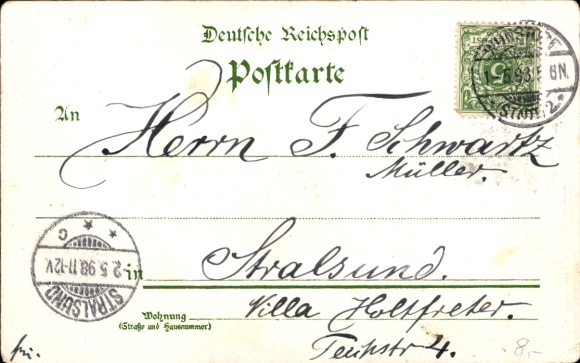 Deutsche Reichspost
Postkarte
An
Herrn F. Schwartz
Müller.
in Stralsund.
Wohnung
(Straße und Hausnummer)
Villa Holtfreter.
4.
STRALSUND
2.5.98.11-12V.
* * C
5
8.-